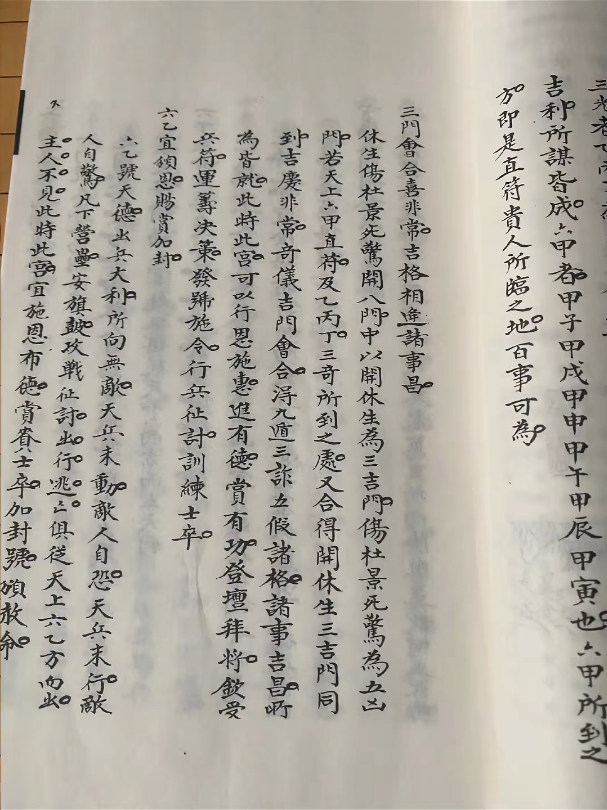 吉利所謀皆成。六甲者。甲子甲戌甲申甲午甲辰甲寅也。六甲所到之
方。即是直符貴人所臨之地。百事可為。
三門會合喜非常。吉格相逢諸事昌。
休生傷杜景死驚開八門。中以開休生為三吉門。傷杜景死驚為五凶
門。若天上六甲直符及乙丙丁三奇所到之處。又合得開休生三吉門同
到。吉慶非常。奇儀吉門會合。得九遁三詐五假諸格。諸事吉昌。所
為皆就。此時此宮。可以行恩施惠。進有德。賞有功。登壇拜將。斂受
兵符。運籌決策。發號施令。行兵征討。訓練士卒。
六乙宜頒恩賜賞加封。
六乙號天德。出兵大利。所向無敵。天兵未動。敵人自恐。天兵未行。敵
人自驚。凡下營壘。安旗鼓。攻戰征討。出行逃亡。俱從天上六乙方向出。
主人不見。此時此宮。宜施恩布德。賞賚士卒。加封號。頒赦命。